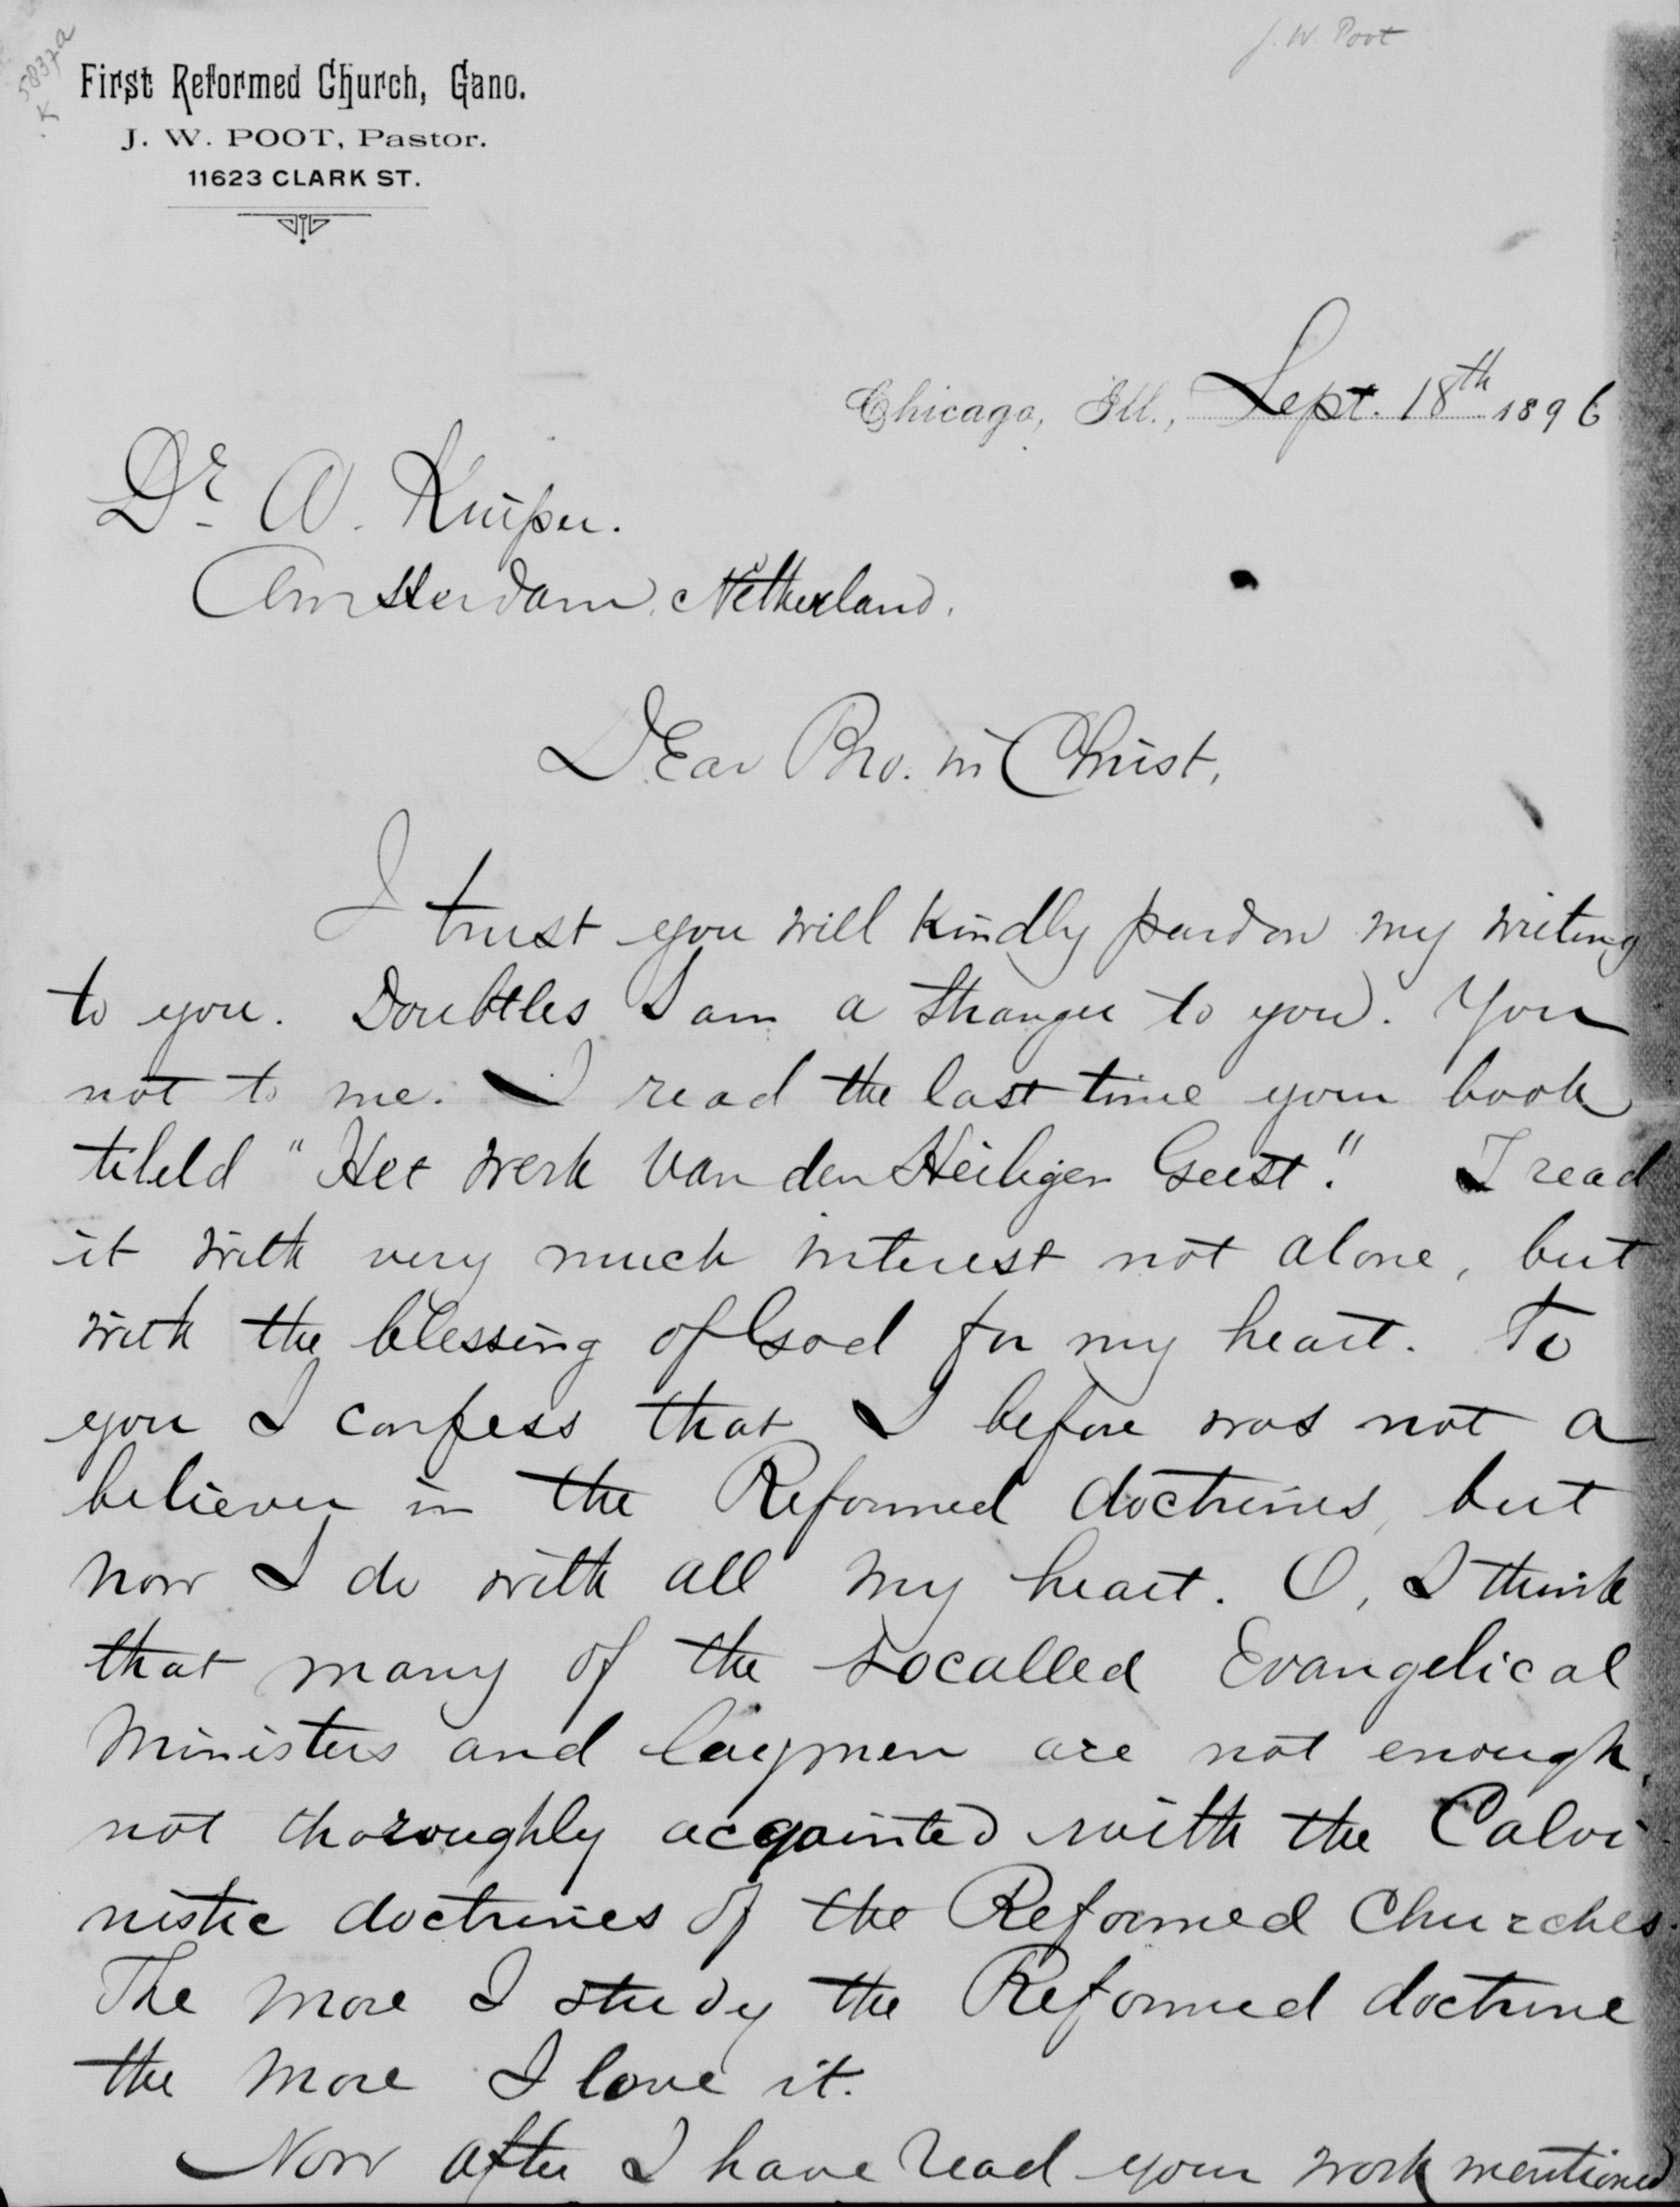 5837a
K
J. W. Poot
First Reformed Church, Gano.
J. W. POOT, Pastor.
11623 CLARK ST.
Chicago, Ill., Sept. 18th 1896
Dr. A. Kuiper.
Amsterdam, Netherland.
Dear Bro. in Christ,
I trust you will kindly pardon my writing
to you. Doubtles I am a stranger to you. You
not to me. I read the last time your book
titeld "Het werk van den Heiligen Geest." I read
it with very much interest not alone, but
with the blessing of God for my heart. To
you I confess that I before was not a
believer in the Reformed doctrines, but
now I do with all my heart. O, I think
that many of the socalled Evangelical
Ministers and laymen are not enough,
not thoroughly acqainted with the Calvi-
nistic doctrines of the Reformed Churches.
The more I study the Reformed doctrine
the more I love it.
Now after I have read your work mentioned